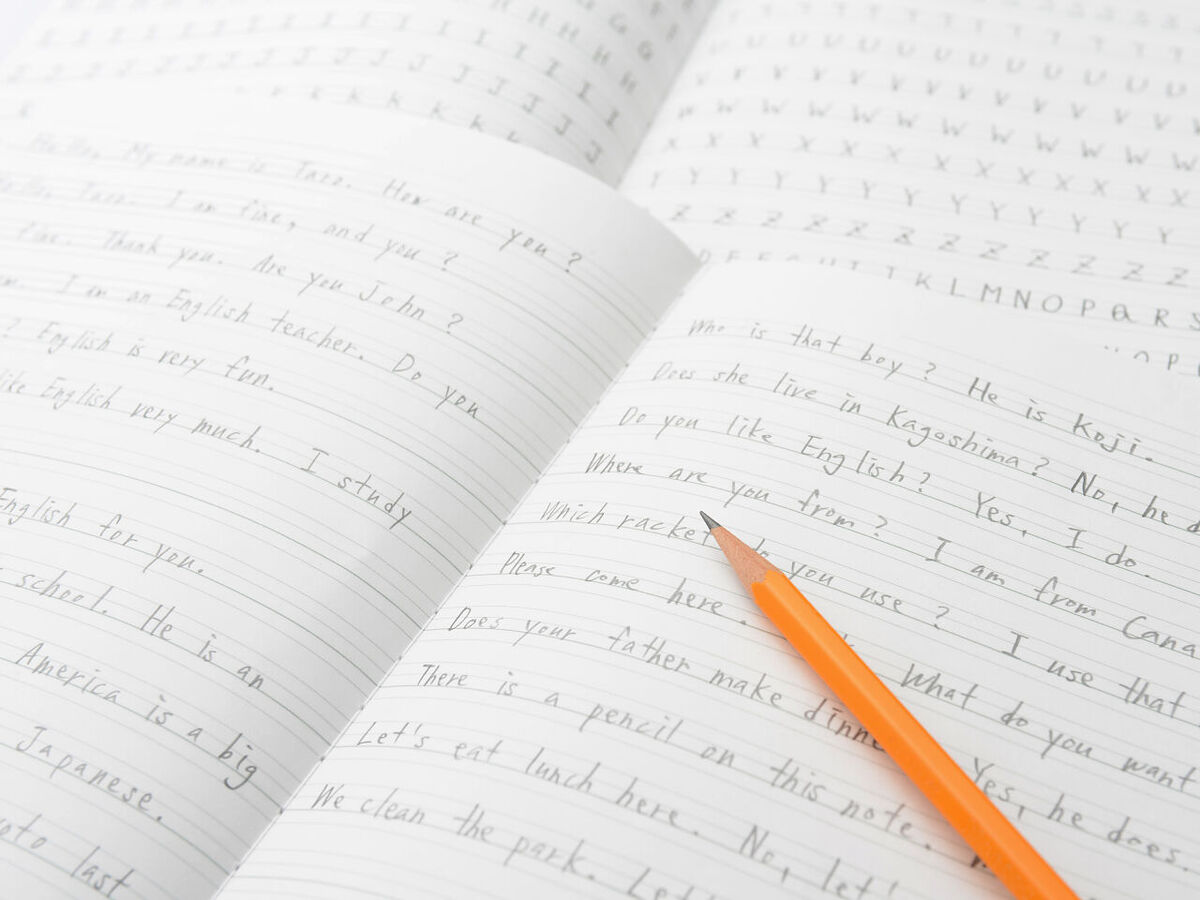 I I I I I I I I I I I I
J J J J J J J J J J J J
K K K K K
Hello, My name is Taro. How are you?
Hello, Taro. I am fine, and you?
fine. Thank you. Are you John?
I am an English teacher. Do you
? English is very fun.
like English very much. I study
English for you.
school. He is an
America is a big
Japanese.
last
U U U U U U U U U U
V V V V V V V V V V
W W W W W W W W W W
X X X X X X X X X X
Y Y Y Y Y Y Y Y Y Y
Z Z Z Z Z Z Z Z Z Z
K L M N O P Q R S
O P
Who is that boy? He is Koji.
Does she live in Kagoshima? No, he
Do you like English? Yes, I do.
Where are you from? I am from
Which racket do you use? I use that
Please come here. What do you want
Does your father make Yes, he does.
There is a pencil on this note.
Let's eat lunch here. No,
We clean the park.